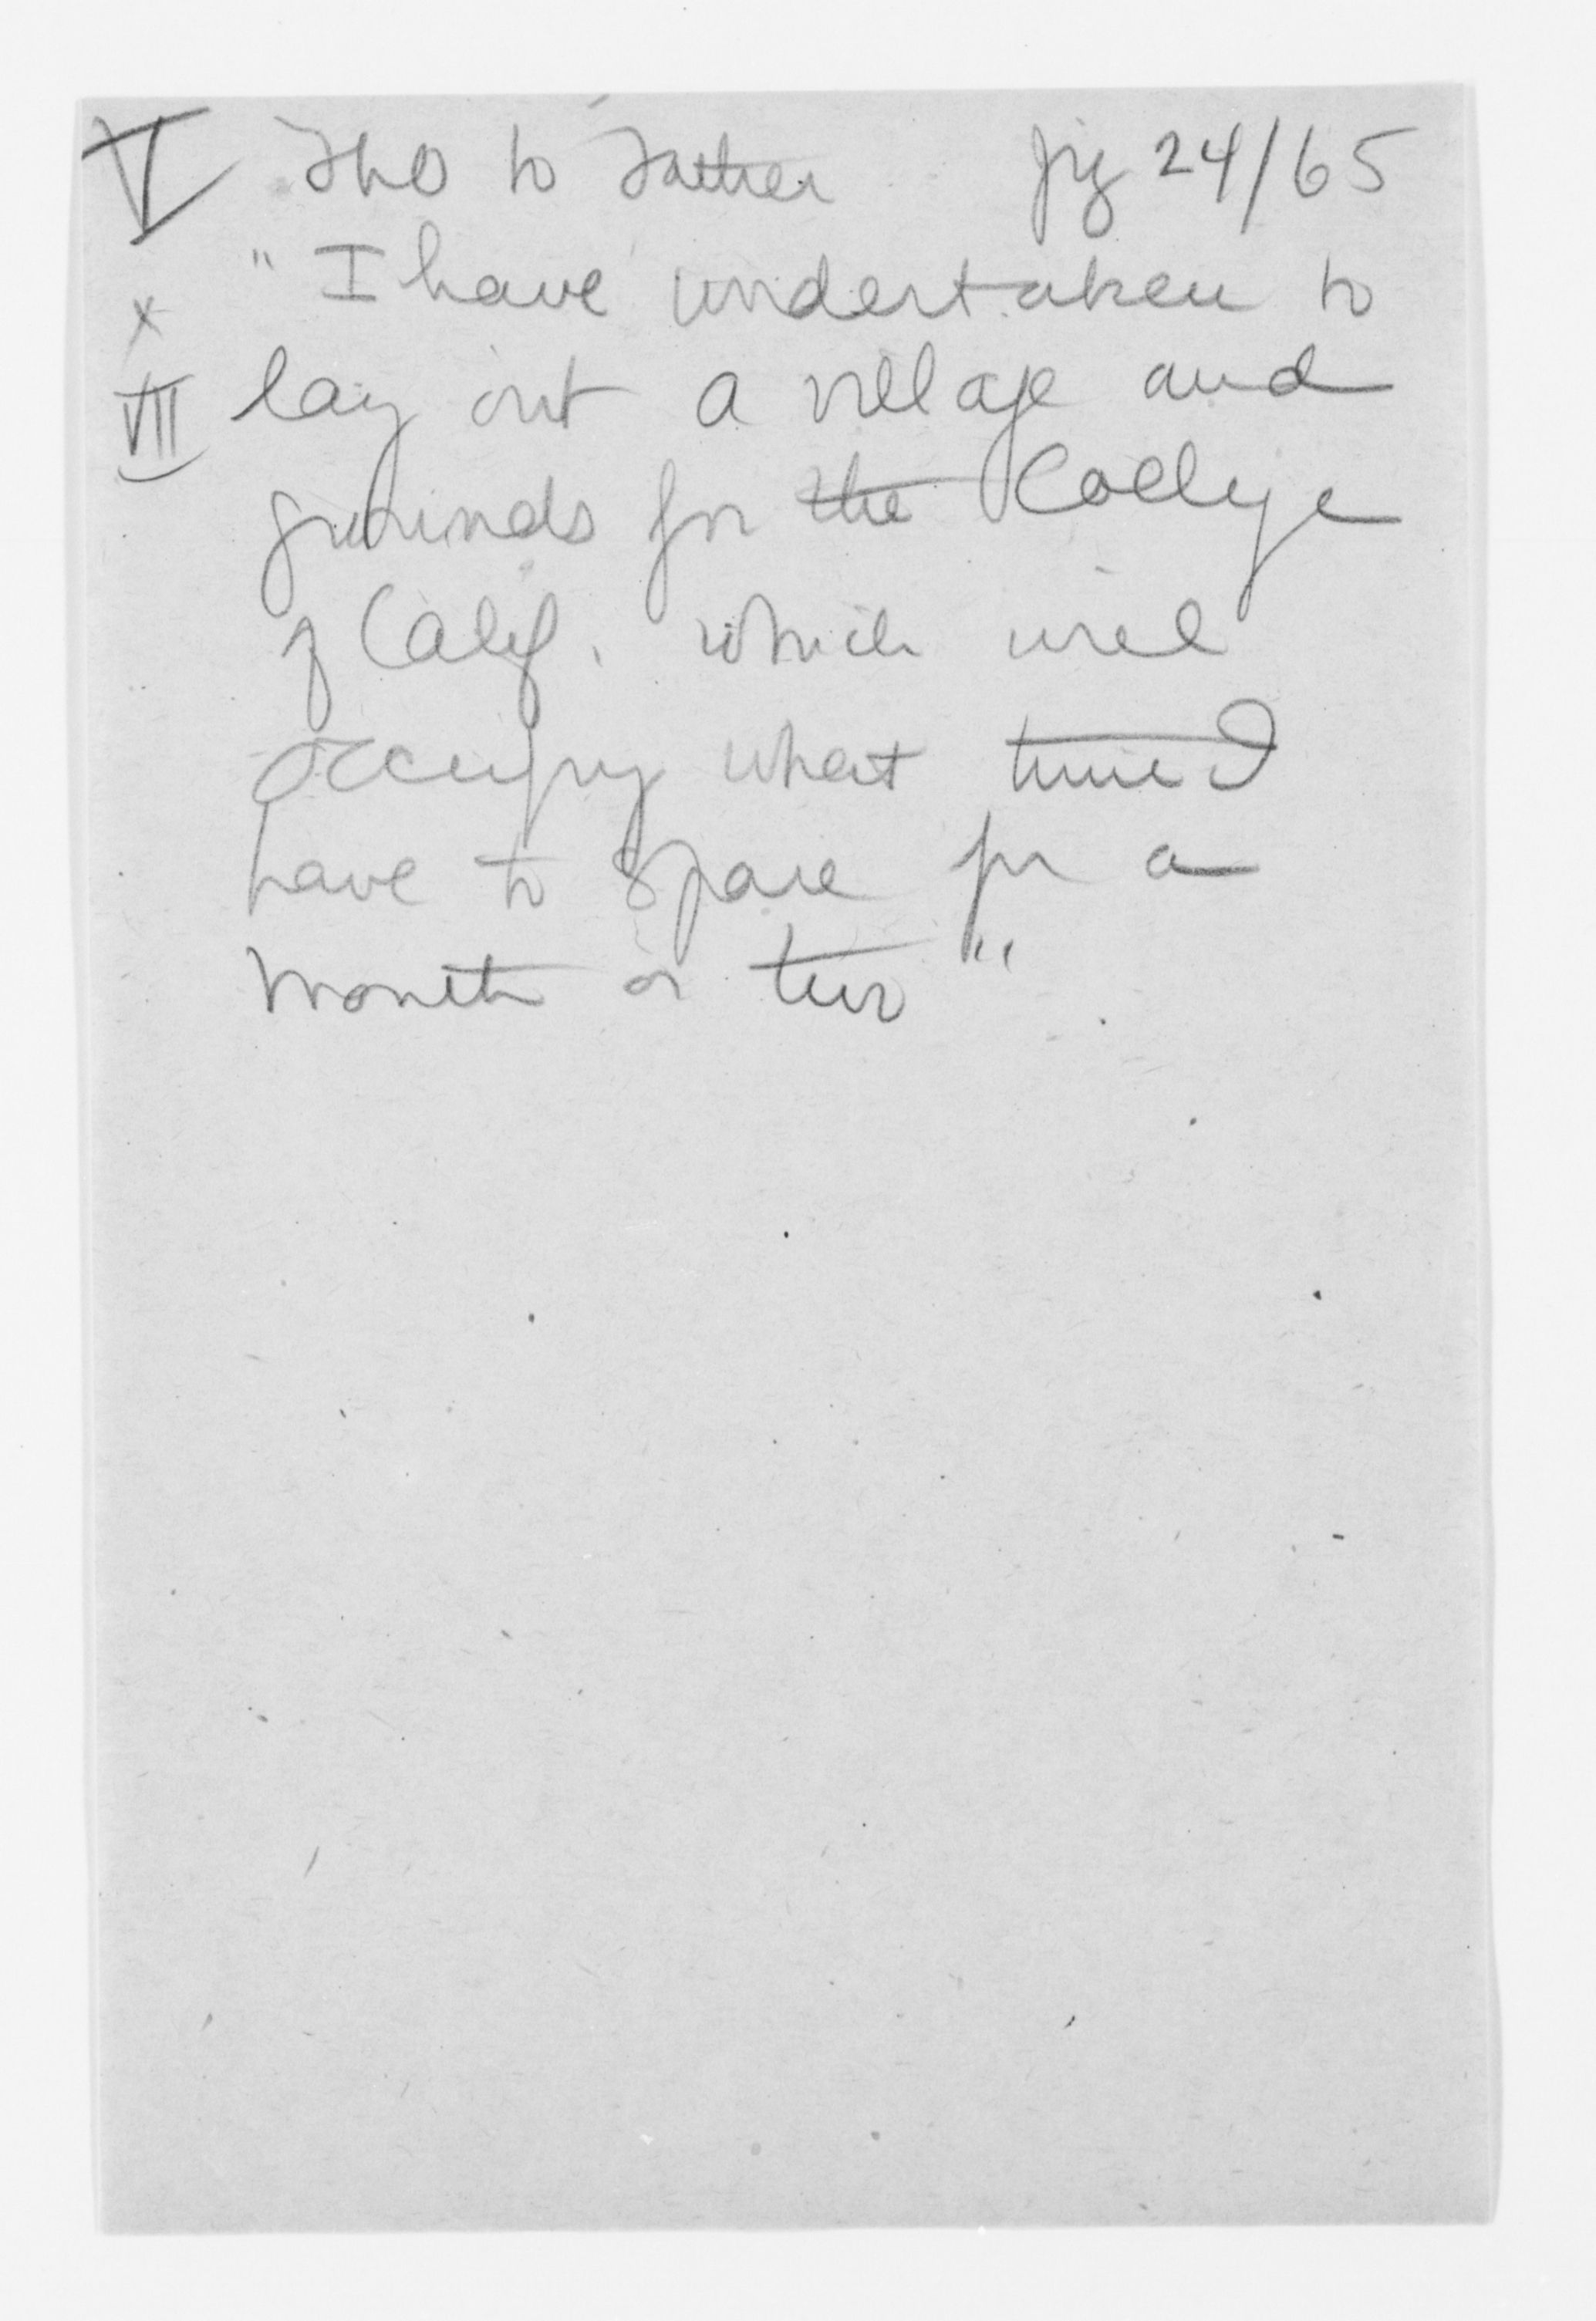 V FLO to Father 24/65
x " I have undertaken to
VII lay out a village and
grounds for the College
of Calif. which will
occupy what time I
have to spare for a
month or two "